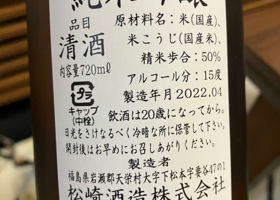 純米吟醸
品目
清酒
内容量720ml
原材料名：米(国産)、
米こうじ(国産米)、
精米歩合：50%
アルコール分：15度
製造年月2022.04
プラ
キャップ
(中栓)
飲酒は20歳になってから。
日光をさけなるべく冷暗な所に保管して下さい。
開封後はお早めにお召しあがりください。
製造者
福島県岩瀬郡天栄村大字下松本字要谷47の1
松崎酒造株式会社